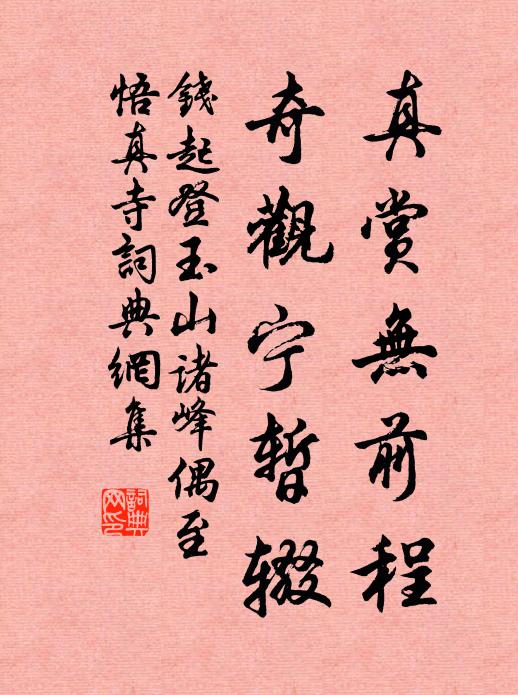 真賞無前程
奇觀宁暫辍
錢起登玉山诸峰偶至
悟真寺詞典網集
詞典網印